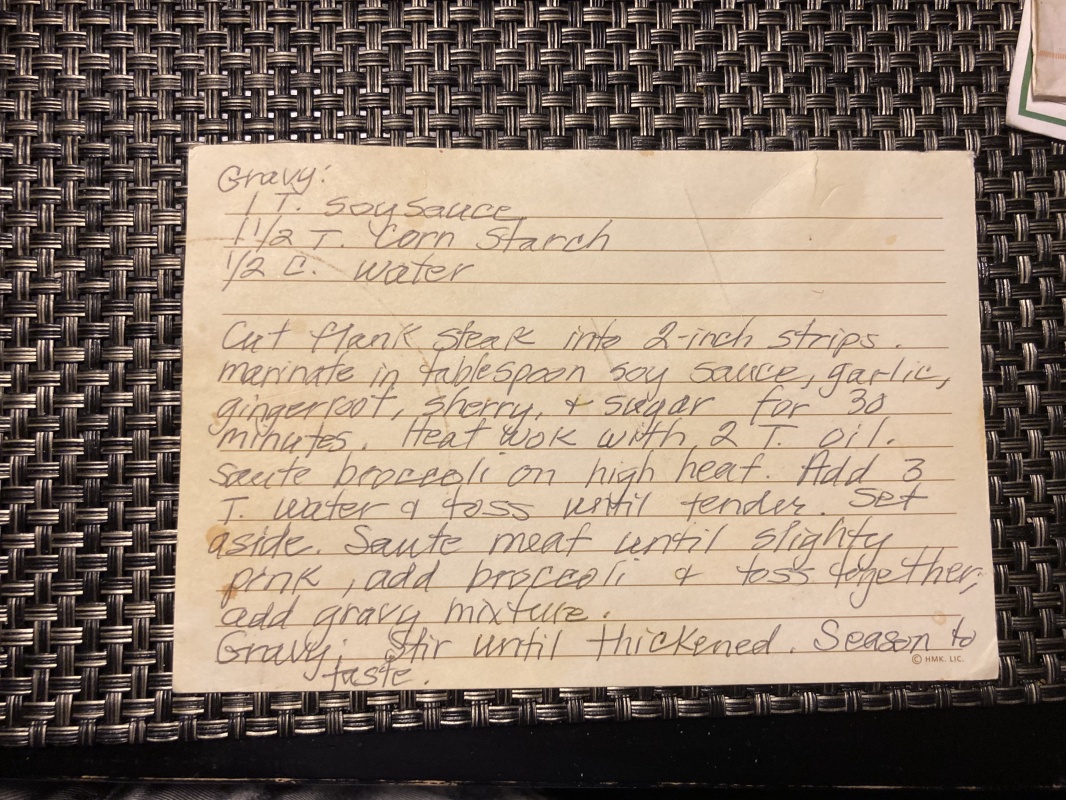 Gravy:
1 T. soy sauce
1 1/2 T. Corn Starch
1/2 C. water
Cut flank steak into 2-inch strips.
marinate in tablespoon soy sauce, garlic,
gingerroot, sherry, & sugar for 30
minutes. Heat wok with 2 T. oil.
Saute broccoli on high heat. Add 3
T. water & toss until tender. Set
aside. Saute meat until slighty
pink, add broccoli & toss together,
add gravy mixture.
Gravy: Stir until thickened. Season to
taste.
© HMK. LIC.